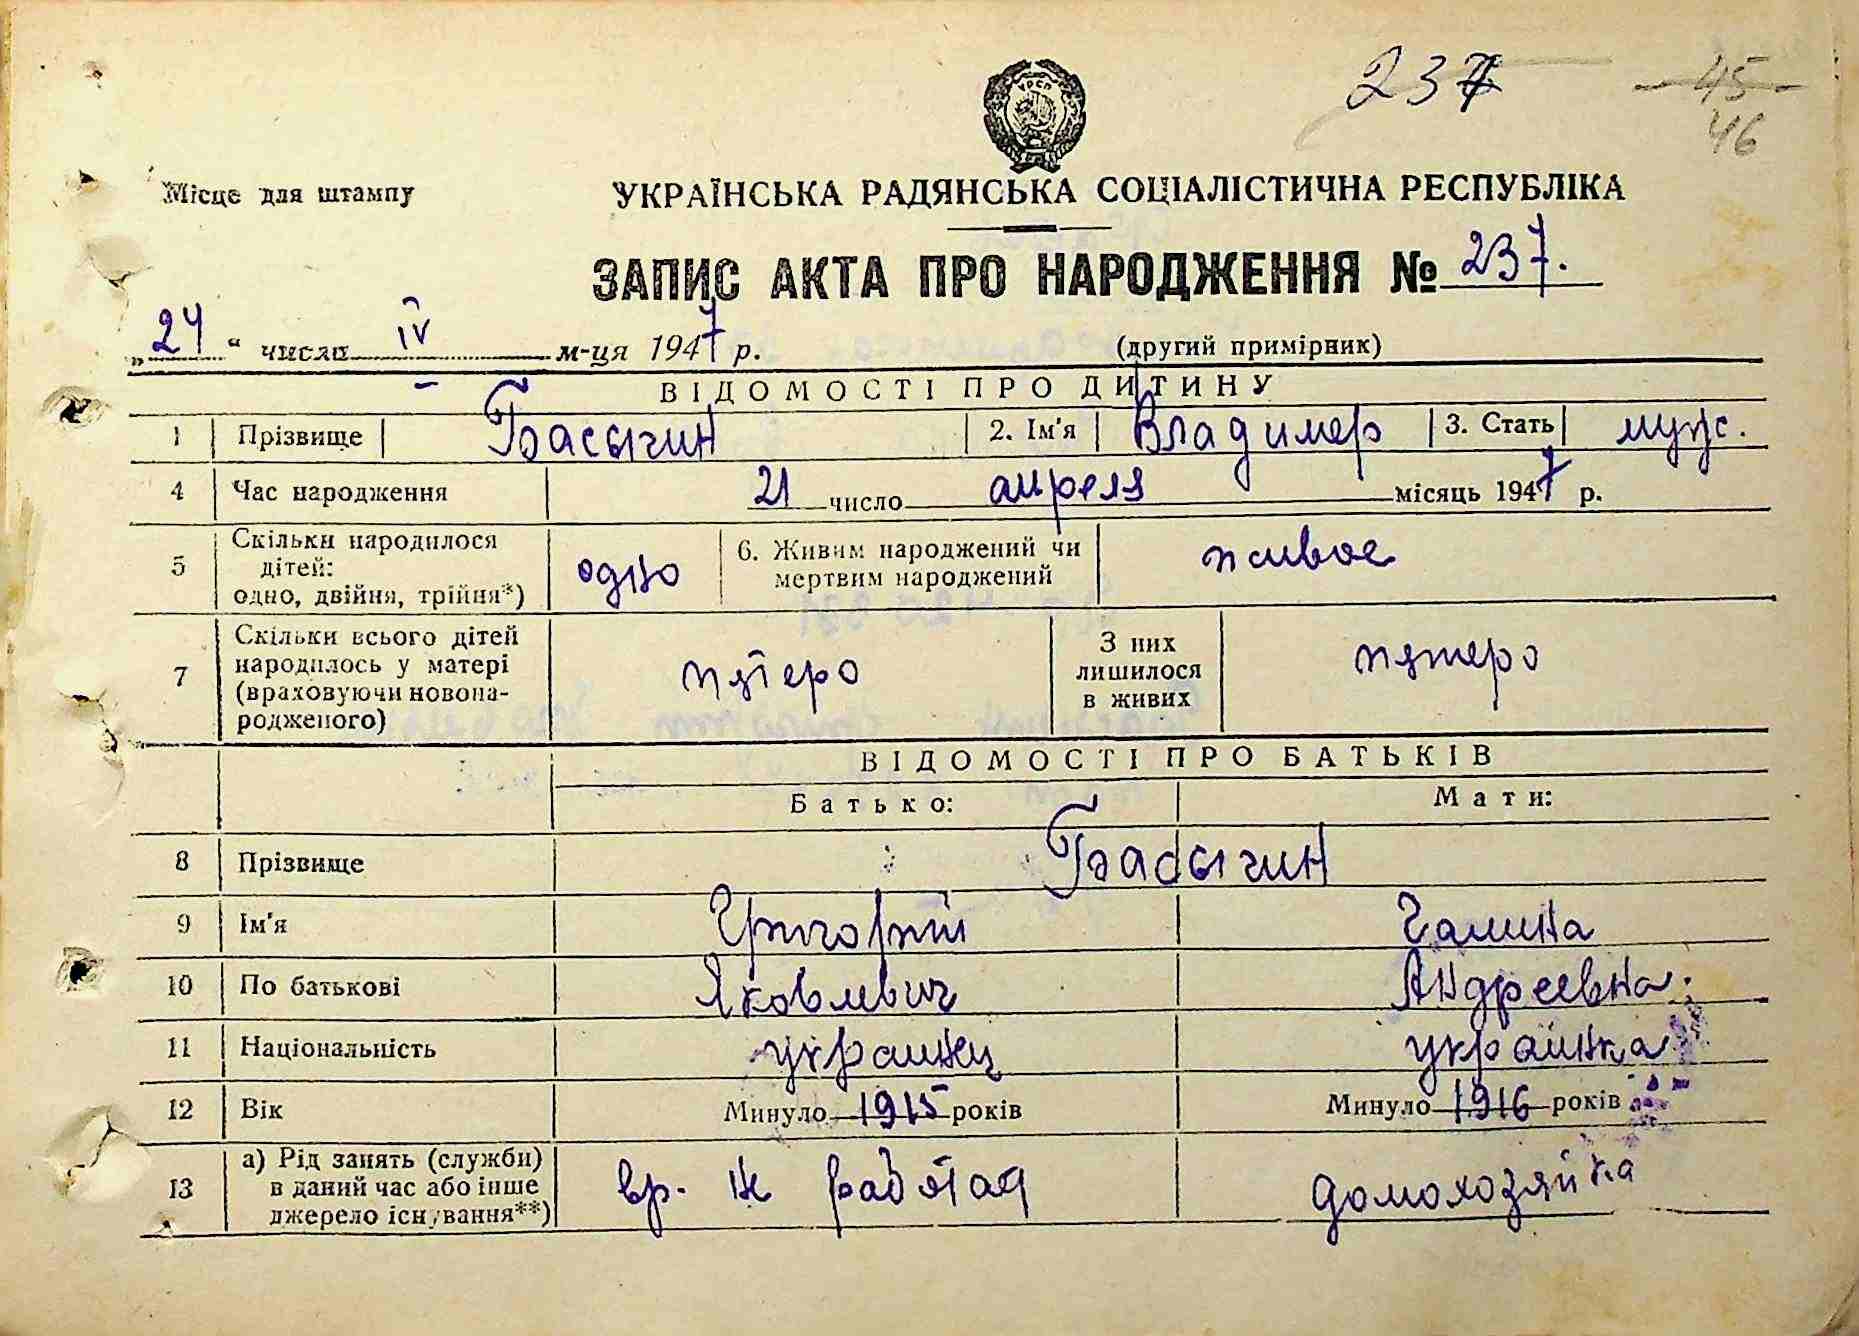 237
45
46
УРСР
Місце для штампу
УКРАЇНСЬКА РАДЯНСЬКА СОЦІАЛІСТИЧНА РЕСПУБЛІКА
ЗАПИС АКТА ПРО НАРОДЖЕННЯ № 237.
„24“ числа IV м-ця 1947 р. (другий примірник)
ВІДОМОСТІ ПРО ДИТИНУ
1 Прізвище Басычин 2. Ім'я Владимер 3. Стать муж.
4 Час народження 21 число апреля місяць 1947 р.
5 Скільки народилося дітей: одно, двійня, трійня*) одно 6. Живим народжений чи мертвим народжений живое
7 Скільки всього дітей народилось у матері (враховуючи новонародженого) пятеро З них лишилося в живих пятеро
ВІДОМОСТІ ПРО БАТЬКІВ
Батько: Мати:
8 Прізвище Басычин
9 Ім'я Григорий Галина
10 По батькові Яковлевич Андреевна.
11 Національність украинец украинка
12 Вік Минуло 1915 років Минуло 1916 років
13 а) Рід занять (служби) в даний час або інше джерело існування**) вр. не работая домохозяйка